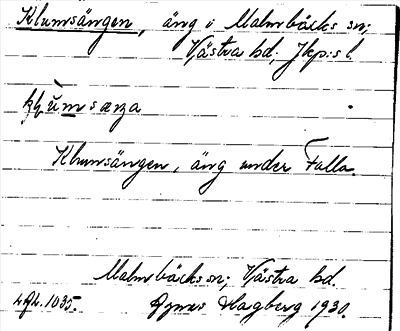 Klumsängen, äng i Malmbäcks sn;
Västra hd, Jkp:s l.
Klumsängen, äng under Falla.
Malmbäcks sn; Västra hd.
Agnes Hagberg 1930.